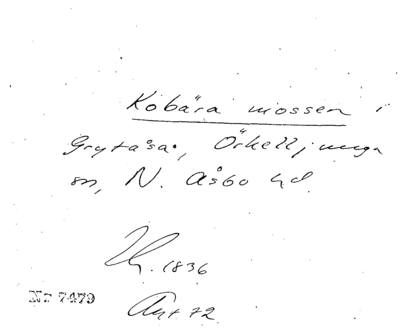 Kobära mossen i
Grytåsa, Örkelljunga
sn, N. Åsbo hd
1836
Nr 7479
72